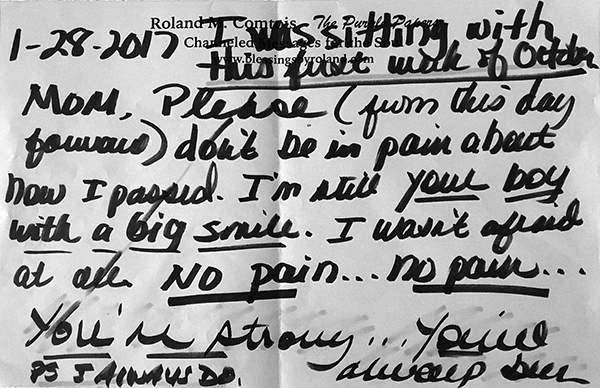 Roland M. Comtois The Purple Papers
Channeled Messages for the Soul
www.blessingsbyroland.com
1-28-2017 I was sitting with
this first week of October
Mom, Please (from this day
forward) don't be in pain about
how I passed. I'm still your boy
with a big smile. I wasn't afraid
at all. No pain... No pain...
You're strong... You've
always been
PS I ALWAYS DO.